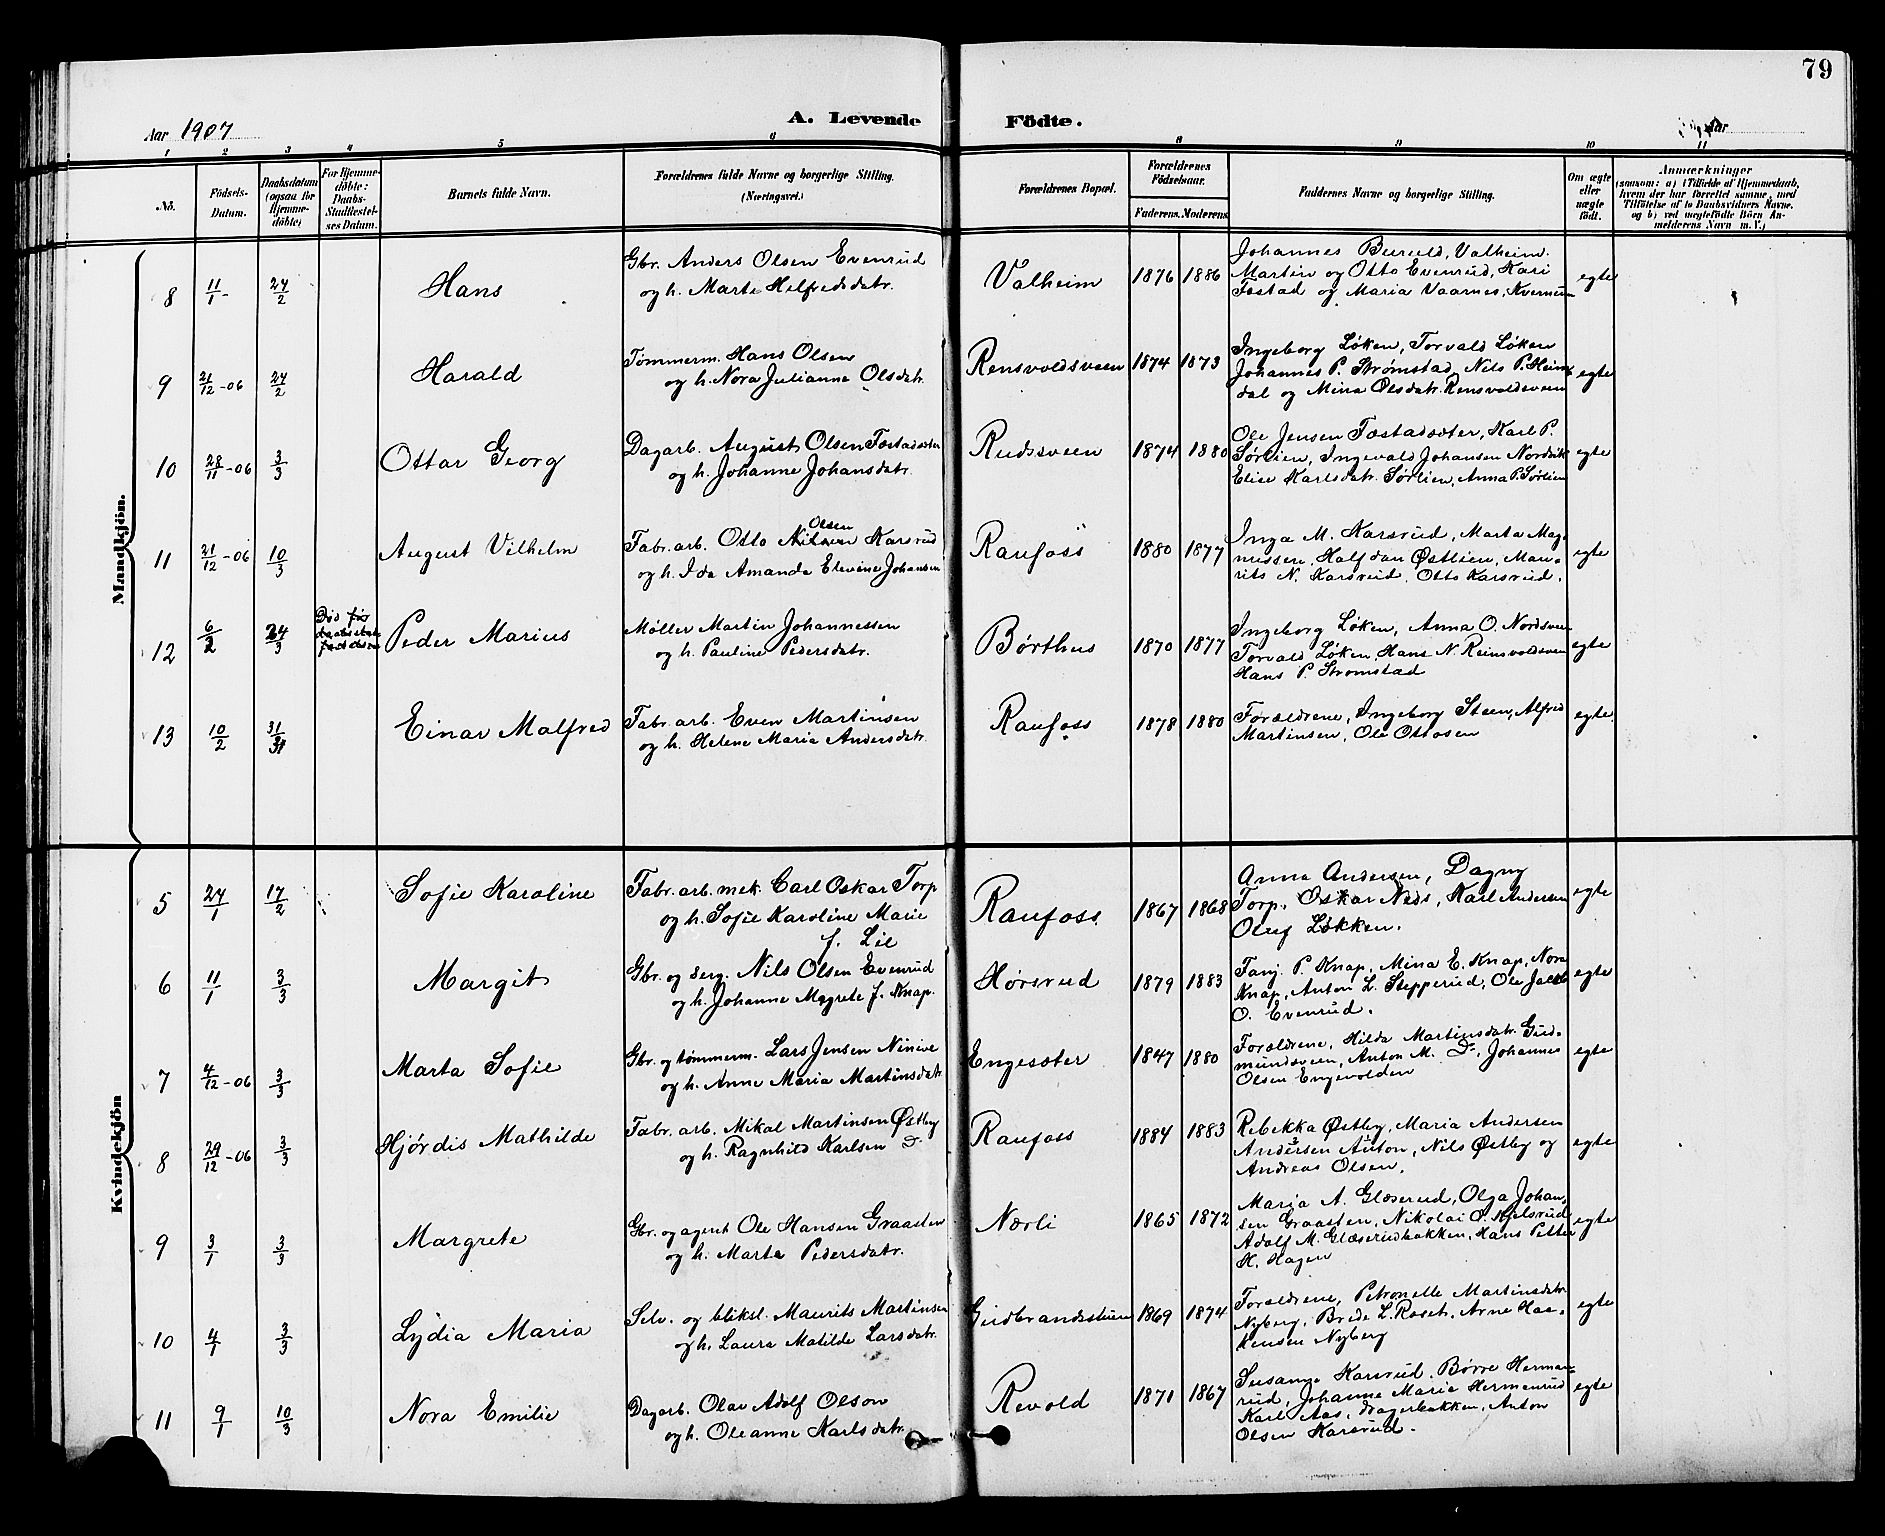 79
Aar 1907
A. Levende Födte.
Aar
1 2 3 4 5 6 8 9 10 11
No.
Födsels-Datum.
Daabsdatum (ogsaa for Hjemme-døbte)
For Hjemme-døbte: Daabs-Stadfæstel-ses Datum.
Barnets fulde Navn.
Forældrenes fulde Navne og borgerlige Stilling. (Næringsvei.)
Forældrenes Bopæl.
Forældrenes Födselsaar.
Faderens. Moderens.
Faddernes Navne og borgerlige Stilling.
Om ægte eller uægte født.
Anmærkninger
(saasom: a) i Tilfælde af Hjemmedaab, hvem der har forrettet samme, med Tilföielse af to Daabsvidners Navne, og b) ved uægtefødte Börn Anmelderens Navn m. V.)
Mandkjön.
8 11/1 - 24/2 Hans
Gbr. Anders Olsen Evenrud
og h. Marte Helfredsdatr.
Valheim 1876 1886
Johannes Buruld, Valheim.
Martin og Otto Evenrud, Kari
Fostad og Maria Vaarnes, Kvernum
egte
9 21/12-06 24/2 Harald
Tømmerm. Hans Olsen
og h. Nora Julianne Olsdatr.
Rensvoldsveen 1874 1873
Ingeborg Løken, Torvald Løken
Johannes P. Strømstad, Nils P. Heim-
dal og Mina Olsdatr. Rensvoldsveen
egte
10 28/11-06 3/3 Ottar Georg
Dagarb. August Olsen Fostadsæter
og h. Johanne Johansdatr.
Rudsveen 1874 1880
Ole Jensen Fostadsæter, Karl P.
Sørlien, Ingevald Johansen Nordvik
Elise Karlsdatr. Sørlien, Anna P. Sørlien
egte
11 21/12-06 10/3 August Vilhelm
Olsen
Fabr. arb. Otto Nilsen Karsrud
og h. Ida Amanda Elevine Johansen
Raufoss 1880 1877
Inga M. Karsrud, Marta Mag-
nussen, Halfdan Østlien, Mau-
rits N. Karsrud, Otto Karsrud.
egte
12 6/2 24/3 Død før
Peder Marius
Møller Martin Johannessen
og h. Pauline Pedersdatr.
Børthus 1870 1877
Ingeborg Løken, Anna O. Nordsveen
Torvald Løken, Hans N. Reinsvoldsveen
Hans P. Strømstad
egte
13 10/2 31/3 Einar Malfred
Fabr. arb. Even Martinsen
og h. Helene Maria Andersdatr.
Raufoss 1878 1880
Forældrene, Ingeborg Steen, Alfred
Martinsen, Ole Ottosen
egte
Kvindekjön
5 27/1 17/2 Sofie Karoline
Fabr. arb. mek. Carl Oskar Torp
og h. Sofie Karoline Marie
f. Lie
Raufoss. 1867 1868
Anna Andersen, Dagny
Torp, Oskar Næs, Karl Andersen
Oluf Løkken.
egte
6 11/1 3/3 Margit
Gbr. og serg. Nils Olsen Evenrud
og h. Johanne Mgrete f. Knap.
Hørsrud 1879 1883
Tanj. P. Knap, Mina E. Knap, Nora
Knap, Anton L. Stepperud, Ole Jakob
O. Evenrud.
egte
7 4/12-06 3/3 Marta Sofie
Gbr. og tømmerm. Lars Jensen Ninive
og h. Anne Maria Martinsdatr.
Engesæter 1847 1880
Forældrene, Hilda Martinsdatr. Gud-
mundsveen, Anton M. Do, Johannes
Olsen Engevolden
egte
8 29/12-06 3/3 Hjørdis Mathilde
Fabr. arb. Mikal Martinsen Østby
og h. Ragnhild Karlsen Do
Raufoss 1884 1883
Rebekka Østby, Maria Andersen
Andersen Anton, Nils Østby og
Andreas Olsen.
egte
9 3/1 3/3 Margrete
Gbr. og agent Ole Hansen Graasten
og h. Marte Pedersdatr.
Nærli 1865 1872
Marja A. Glæserud, Olga Johan-
sen Graasten, Nikolai O. Hjelsrud
Adolf M. Glæserudbakken, Hans Petter
H. Hagen
egte
10 4/1 3/3 Lydia Maria
Selv. og bliksl. Maurits Martinsen
og h. Laura Matilde Larsdatr.
Gudbrandsstuen 1869 1874
Forældrene, Petronelle Martinsdatr.
Nyberg, Brede L. Roset, Arne Haa-
kensen Nyberg
egte
11 9/1 10/3 Nora Emilie
Dagarb. Olav Adolf Olson
og h. Oleanne Karlsdatr.
Revold 1871 1867
Susanne Karsrud, Børre Herman-
rud, Johanne Marie Hermanrud
Karl Aas, dragerbakken, Anton
Olsen Karsrud.
egte